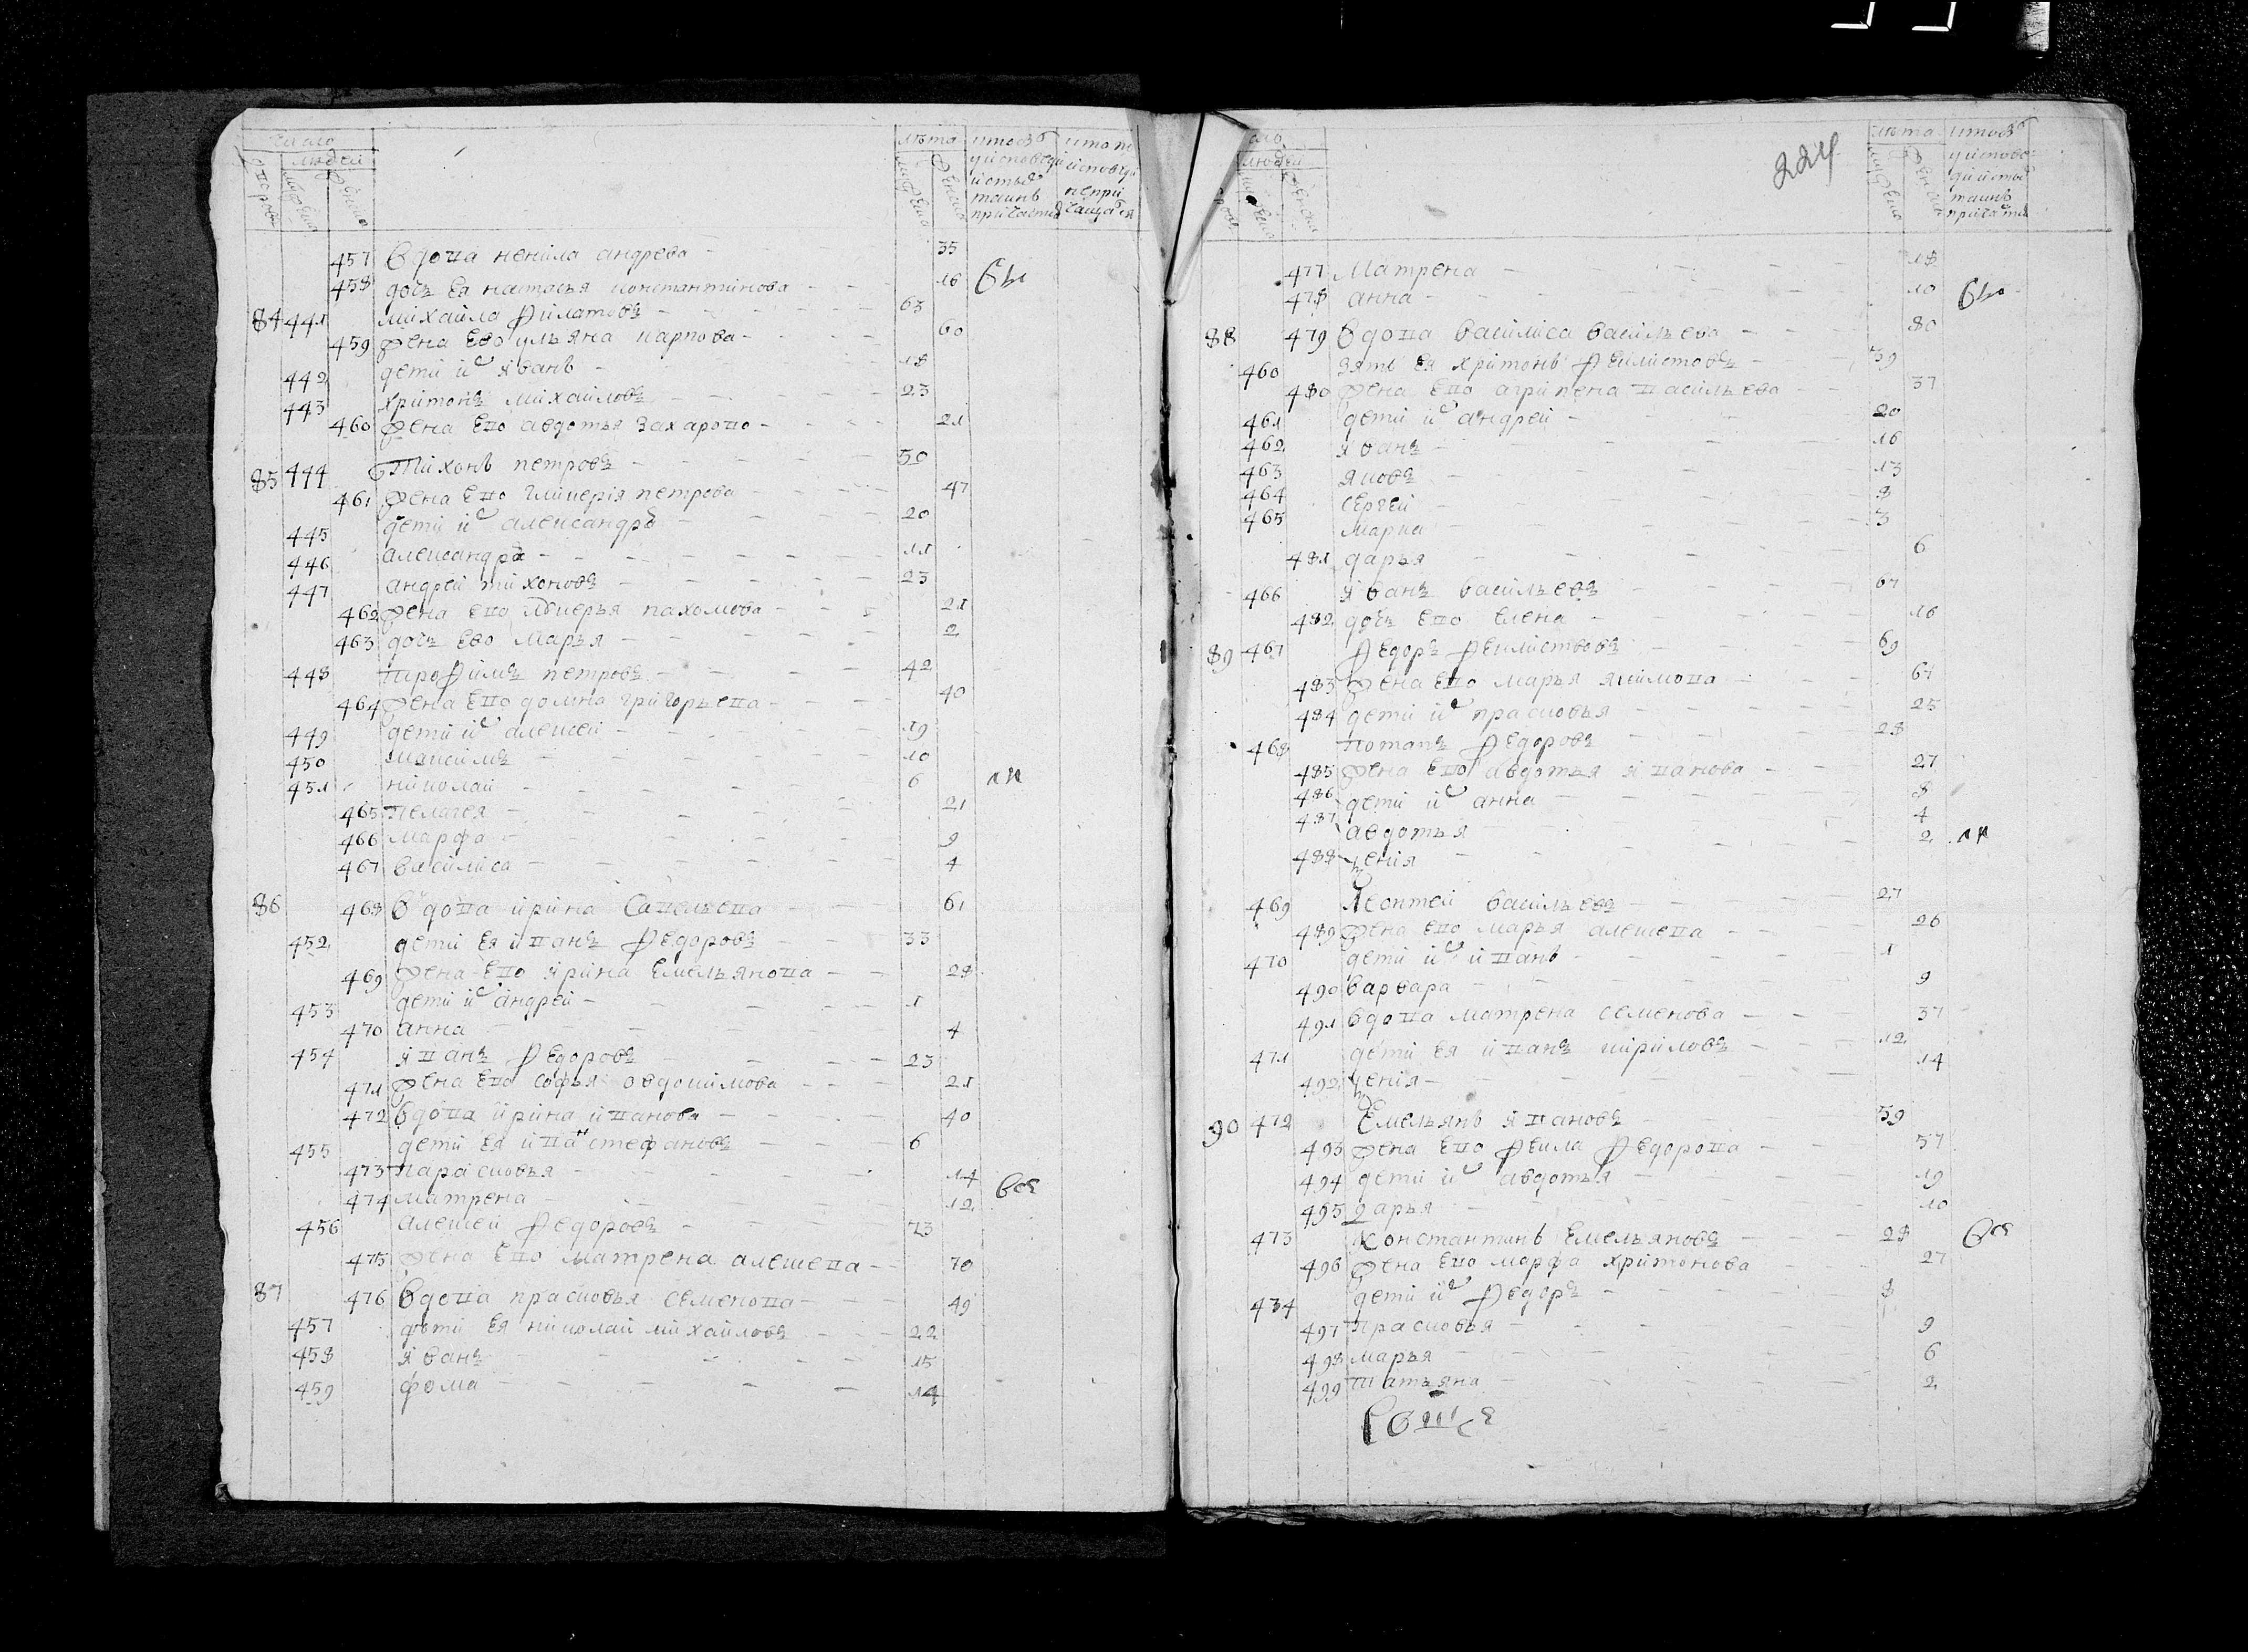 число
людей
лѣта
457 вдова ненила андрева 35
458 дочь ея настасья константинова 16 бы
84 441 михайла филатовъ 63
459 жена ево ульяна карпова 60
442 дети их яванъ 18
443 харитонъ михайловъ 23
460 жена ево авдотья захарово 21
85 444 Тихонъ петровъ 50
461 жена ево гликерія петрова 47
445 дети их александръ 20
446 александръ 11
447 андрей тихоновъ 23
462 жена ево лукерья пахомова 21
463 дочь ево марья 2
448 трофимъ петровъ 42
464 жена ево домна григорьева 40
449 дети их алексей 19
450 максимъ 10
451 николай 6
465 пелагея 21
466 марфа 9
467 василиса 4
86 468 вдова ирина савельева 61
452 дети ея иванъ федоровъ 33
469 жена ево ярина емельянова 28
453 дети их андрей 1
470 анна 4
454 яванъ федоровъ 23
471 жена ево софья овдокимова 21
472 вдова ирина иванова 40
455 дети ея иван стефановъ 6
473 парасковья 14
474 матрена 12 все
456 алексей федоровъ 73
475 жена ево матрена алексева 70
87 476 вдова прасковья семенова 49
457 дѣти ея николай михайловъ 22
458 яванъ 15
459 фома 14
224
людей
лѣта
477 Матрена 18
478 анна 10 бы
88 479 вдова василиса васильева 80
460 зять ея харитонъ феклистовъ 39
480 жена ево агрипена васильева 37
461 дети их андрей 20
462 яванъ 16
463 яковъ 13
464 сергей 8
465 марка 3
481 дарья 6
466 яванъ васильевъ 67
482 дочь ево елена 16
89 467 федоръ феклистовъ 69
483 жена ево марья якимова 67
484 дети их прасковья 25
468 потапъ федоровъ 28
485 жена ево авдотья яванова 27
486 дети их анна 8
487 авдотья 4
488 ѯенія 2
469 леонтей васильевъ 27
489 жена ево марья алексева 26
470 дети их иванъ 1
490 варвара 9
491 вдова матрена семенова 37
471 дети ея иванъ кириловъ 12
492 ѯенія 14
90 472 Емельянъ явановъ 59
493 жена ево фекла федорова 57
494 дети их авдотья 19
495 дарья 10
473 константинъ емельяновъ 28 все
496 жена ево марфа харитонова 27
474 дети их федоръ 8
497 прасковья 9
498 марья 6
499 татьяна 2